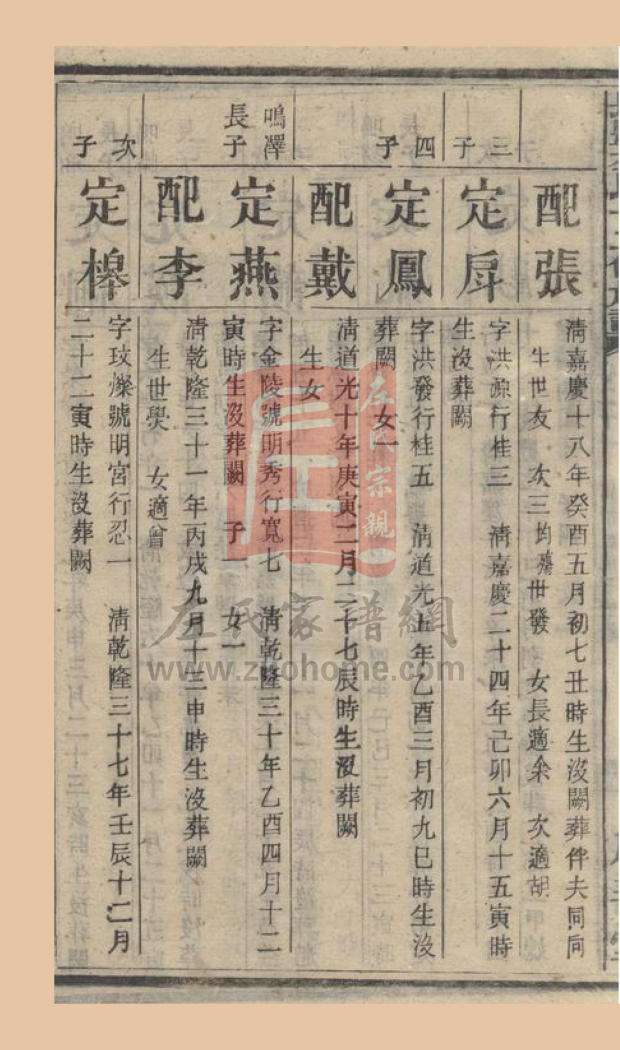 配張
清嘉慶十八年癸酉五月初七丑時生沒闕葬伴夫同向
生世友 次三均殤世發 女長適余 次適胡
三子
定戽
字洪源行桂三 清嘉慶二十四年己卯六月十五寅時
生沒葬闕
四子
定鳳
字洪發行桂五 清道光五年乙酉三月初九巳時生沒
葬闕 女一
配戴
清道光十年庚寅二月二十七辰時生沒葬闕
生女
鳴澤長子
定燕
字金陵號明秀行寬七 清乾隆三十年乙酉四月十二
寅時生沒葬闕 子一 女一
配李
清乾隆三十一年丙戌九月十三申時生沒葬闕
生世爕 女適曾
次子
定槹
字玟爍號明宮行忍一 清乾隆三十七年壬辰十二月
二十二寅時生沒葬闕
左氏宗親
左氏家譜網
www.zuohome.com